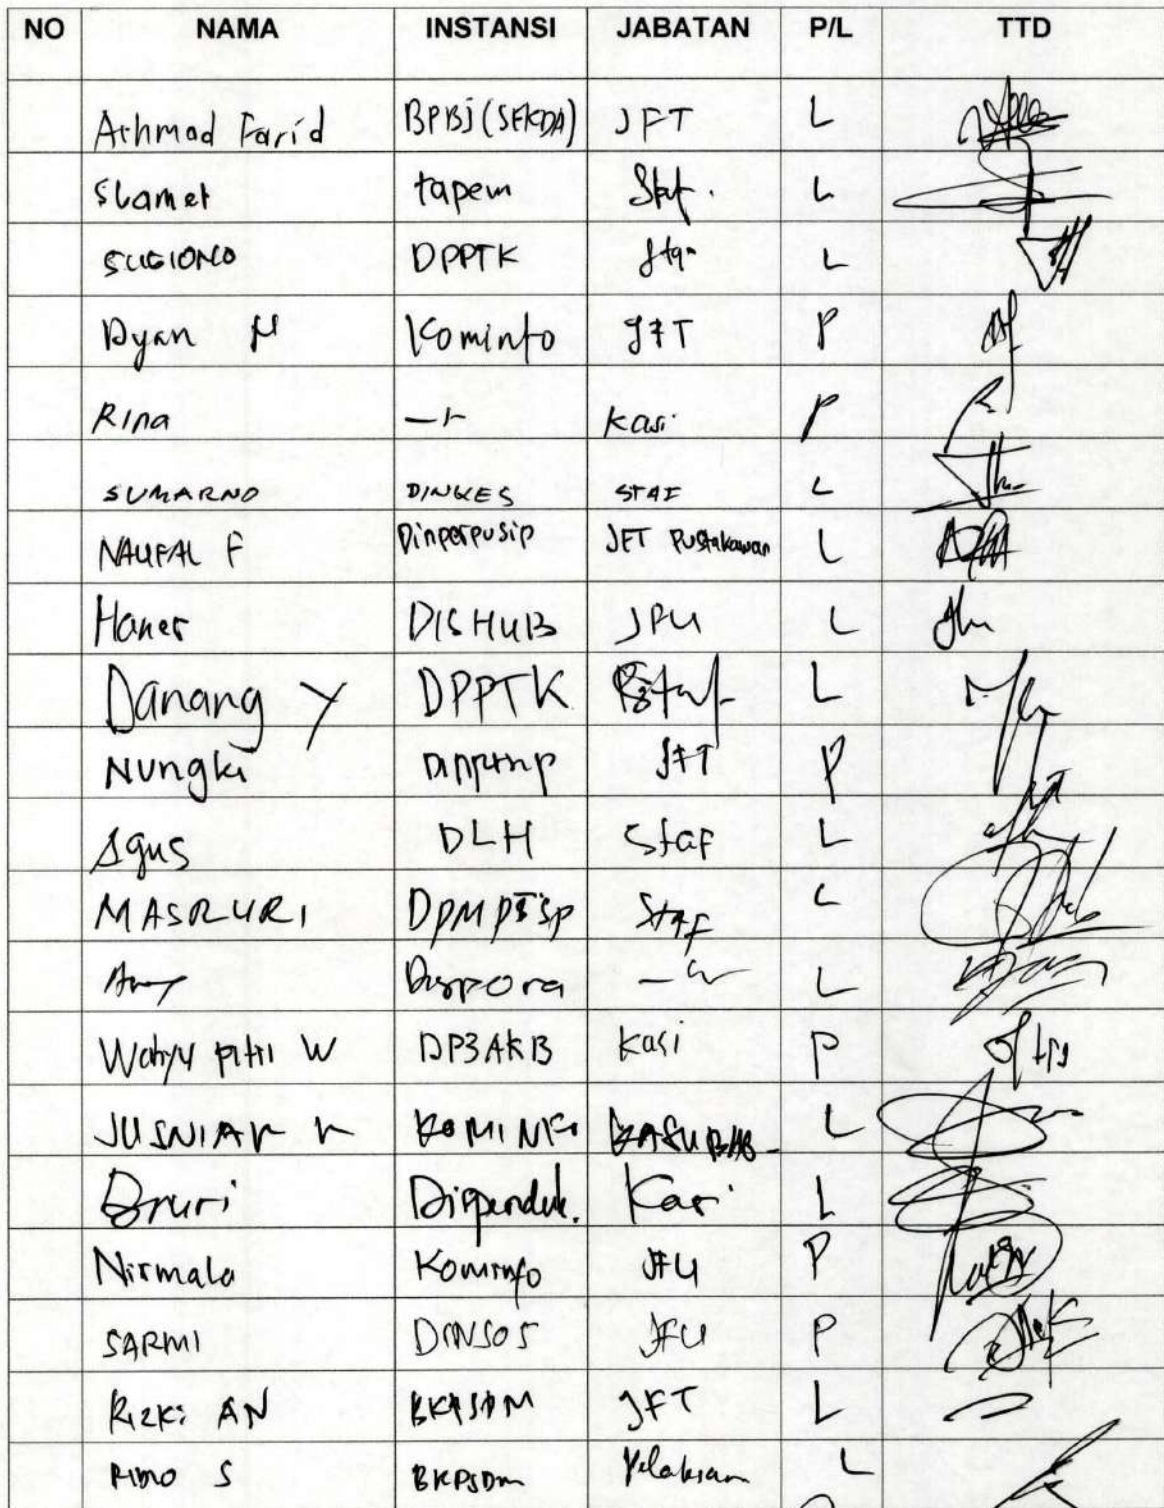 NO NAMA INSTANSI JABATAN P/L TTD
Achmad Farid BPBJ (SEKDA) JFT L
Slamet tapem Staf. L
SUGIONO DPPTK L
Dyan Kominfo JFT P
Rina Kasi P
SUMARNO DINKES STAF L
NAUFAL F Dinperpusip JFT Pustakawan L
DISHUB JFU L
Danang Y DPPTK Staf L
Nungki JFT P
Agus DLH Staf L
MASRURI DPMPTSP Staf L
Dispora L
Wahyu Pitri W DP3AKB Kasi P
KOMINFO KASUBAG L
Druri Dispenduk. Kasi L
Nirmala Kominfo JFU P
SARMI DINSOS JFU P
Rizki AN BKPSDM JFT L
S BKPSDM Pelaksana L